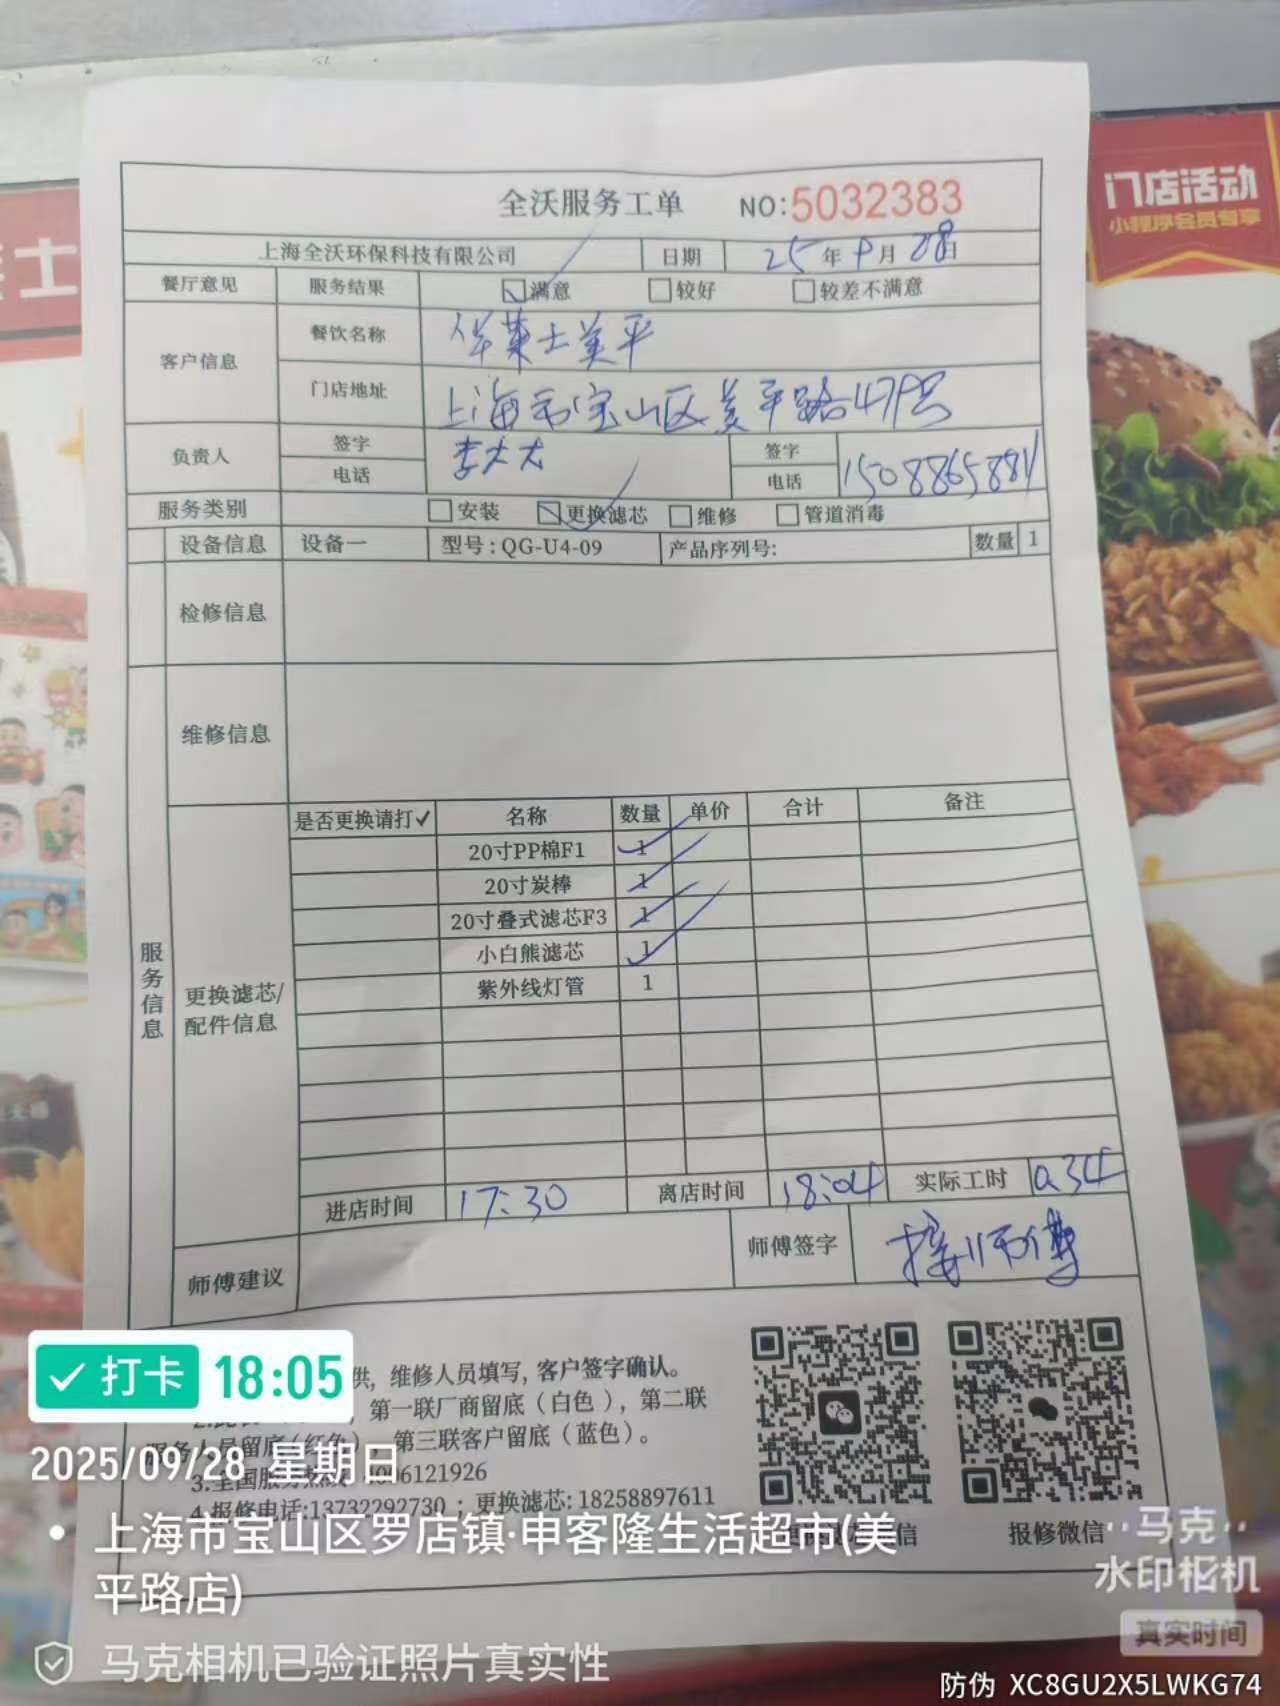 门店活动
小程序会员专享
士
全沃服务工单 NO:5032383
上海全沃环保科技有限公司 日期 25年9月28日
餐厅意见 服务结果 满意 较好 较差不满意
客户信息 餐饮名称 华莱士美平
门店地址 上海市宝山区美平路479号
负责人 签字 李大大 签字
电话 电话 15088658881
服务类别 安装 更换滤芯 维修 管道消毒
设备信息 设备一 型号:QG-U4-09 产品序列号: 数量 1
检修信息
维修信息
服务信息
更换滤芯/
配件信息
是否更换请打✓ 名称 数量 单价 合计 备注
20寸PP棉F1 1
20寸炭棒 1
20寸叠式滤芯F3 1
小白熊滤芯 1
紫外线灯管 1
进店时间 17:30 离店时间 18:04 实际工时 0.34
师傅建议 师傅签字
供, 维修人员填写, 客户签字确认。
第一联厂商留底（白色）, 第二联
服务人员留底(红色), 第三联客户留底（蓝色）。
3.全国服务热线 4006121926
4.报修电话:13732292730 ; 更换滤芯: 18258897611
报修微信
打卡 18:05
2025/09/28 星期日
上海市宝山区罗店镇·申客隆生活超市(美
平路店)
马克相机已验证照片真实性
马克
水印相机
真实时间
防伪 XC8GU2X5LWKG74